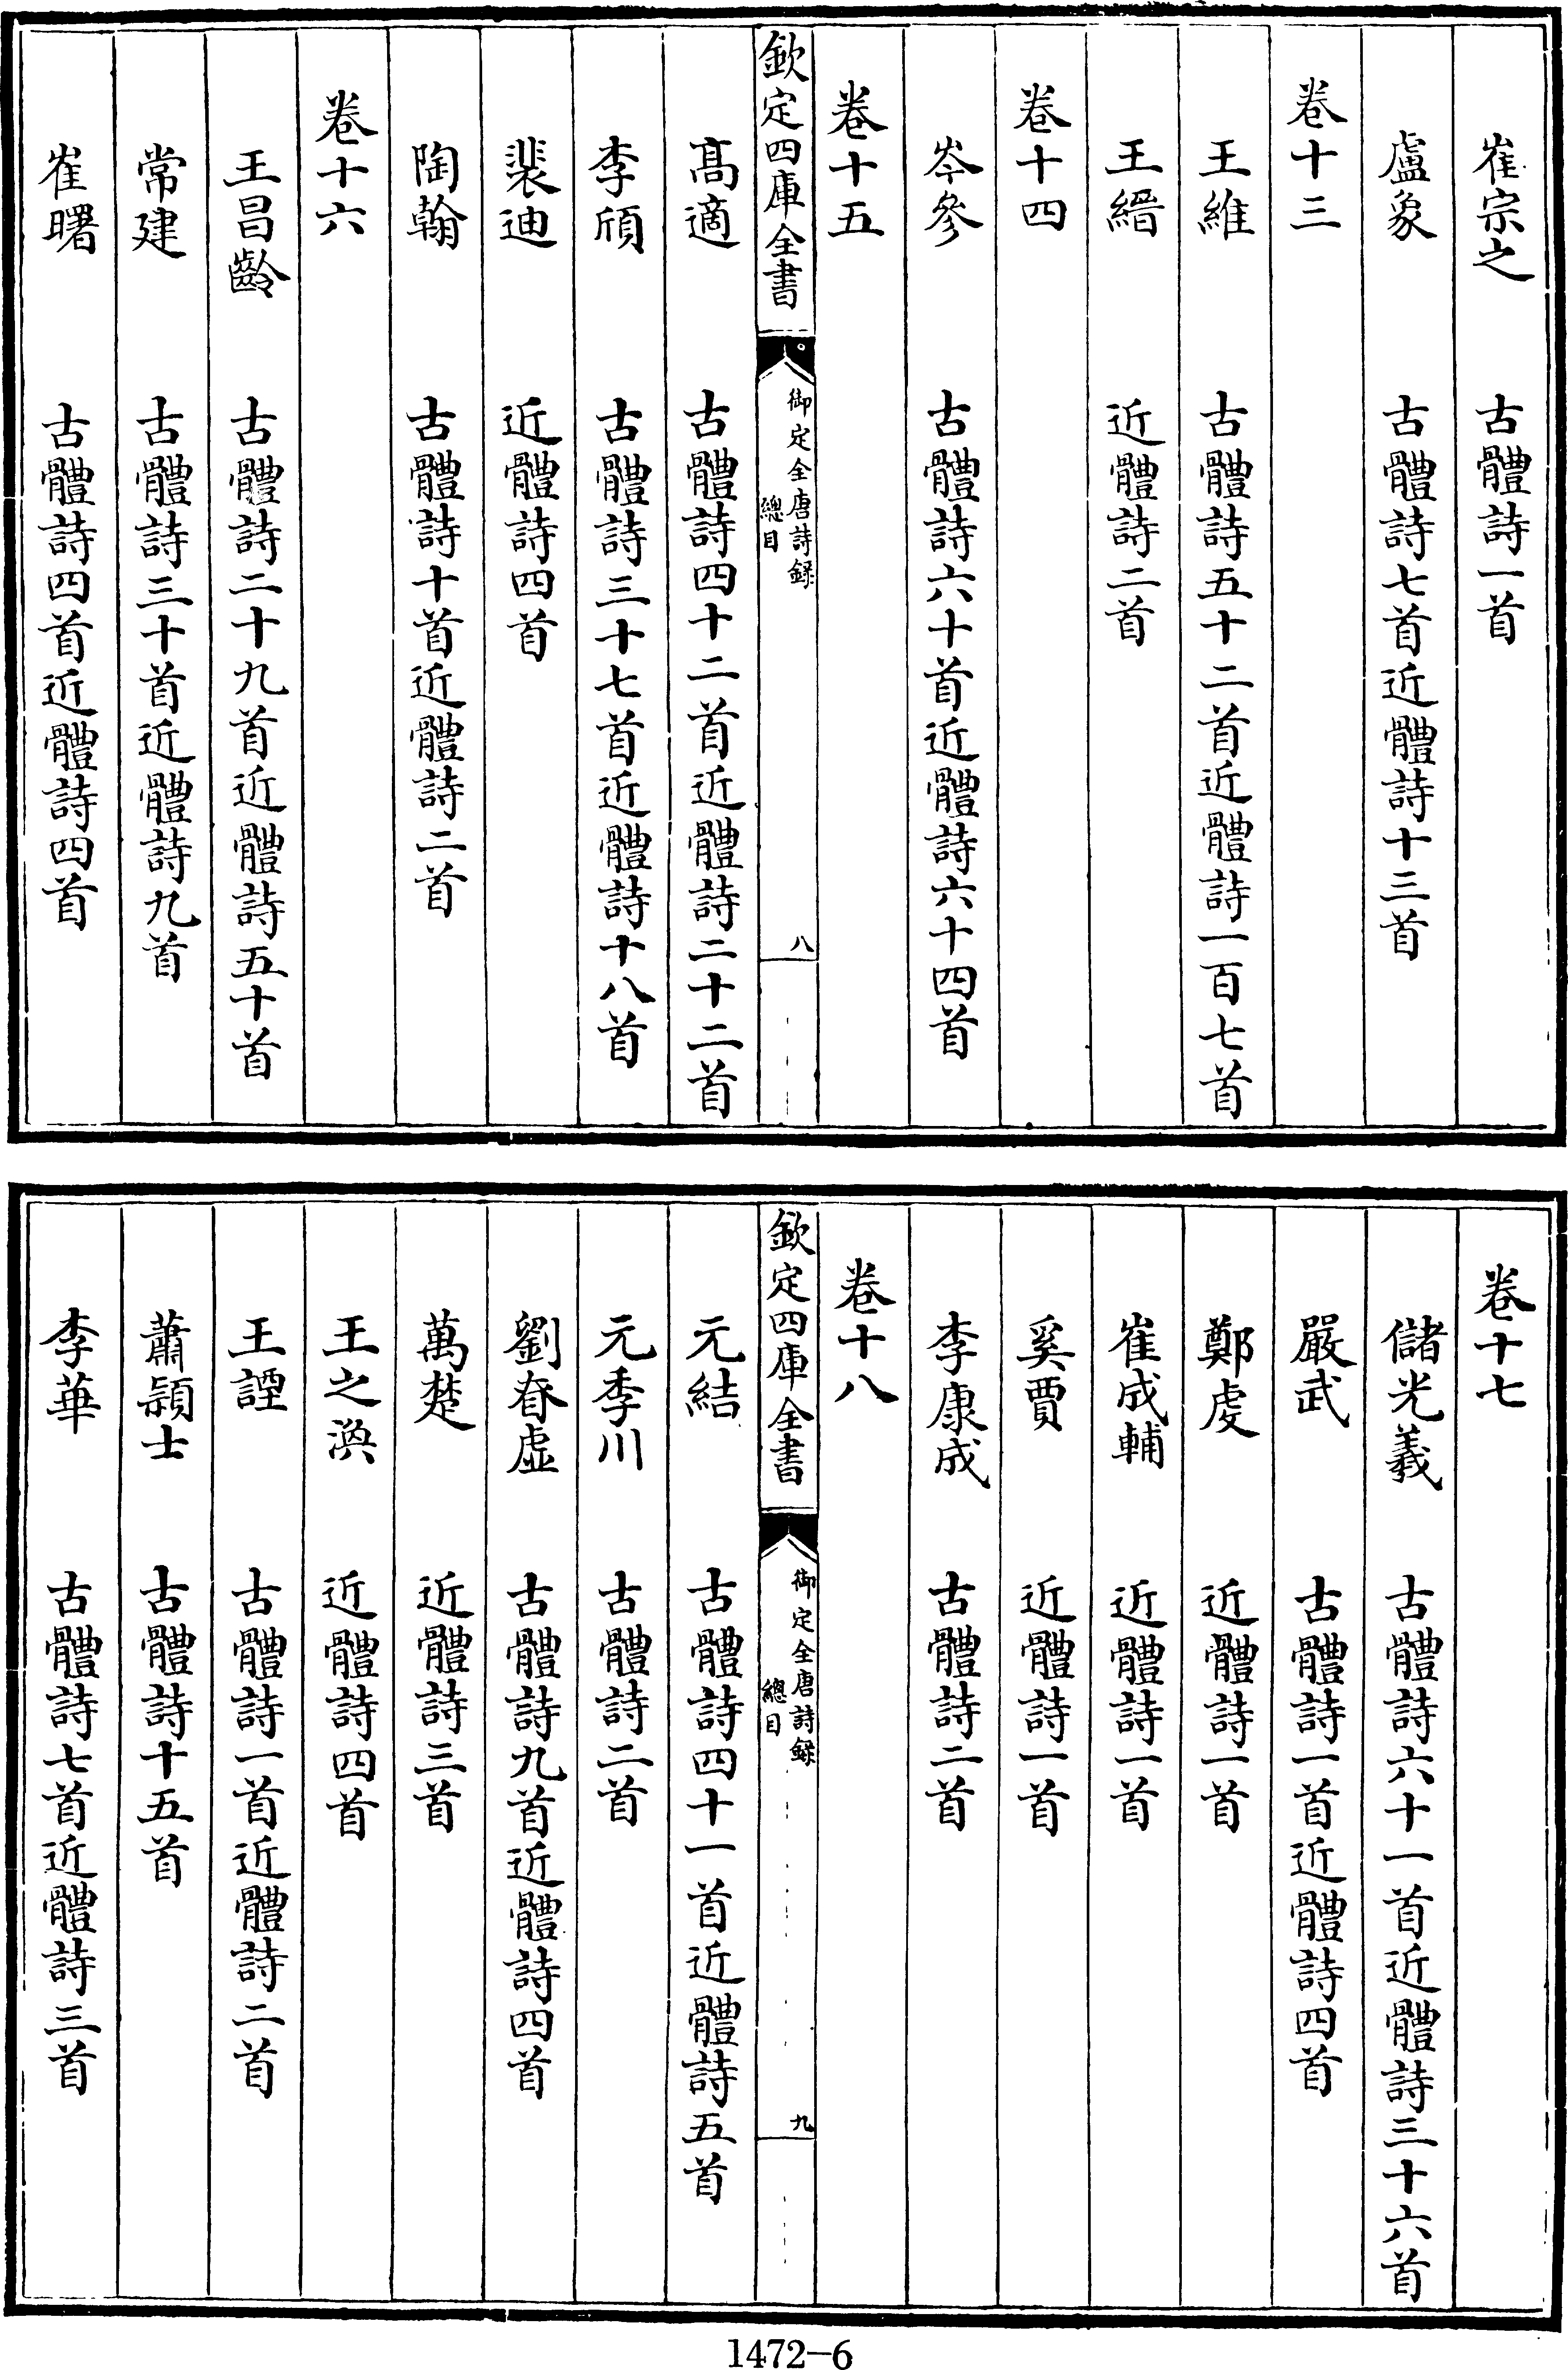 崔宗之 古體詩一首
盧象 古體詩七首近體詩十三首
卷十三
王維 古體詩五十二首近體詩一百七首
王縉 近體詩二首
卷十四
岑參 古體詩六十首近體詩六十四首
卷十五
欽定四庫全書 御定全唐詩録 總目 八
髙適 古體詩四十二首近體詩二十二首
李頎 古體詩三十七首近體詩十八首
裴迪 近體詩四首
陶翰 古體詩十首近體詩二首
卷十六
王昌齡 古體詩二十九首近體詩五十首
常建 古體詩三十首近體詩九首
崔曙 古體詩四首近體詩四首
卷十七
儲光羲 古體詩六十一首近體詩三十六首
嚴武 古體詩一首近體詩四首
鄭虔 近體詩一首
崔成輔 近體詩一首
奚賈 近體詩一首
李康成 古體詩二首
卷十八
欽定四庫全書 御定全唐詩録 總目 九
元結 古體詩四十一首近體詩五首
元季川 古體詩二首
劉眘虛 古體詩九首近體詩四首
萬楚 近體詩三首
王之渙 近體詩四首
王諲 古體詩一首近體詩二首
蕭頴士 古體詩十五首
李華 古體詩七首近體詩三首
1472-6